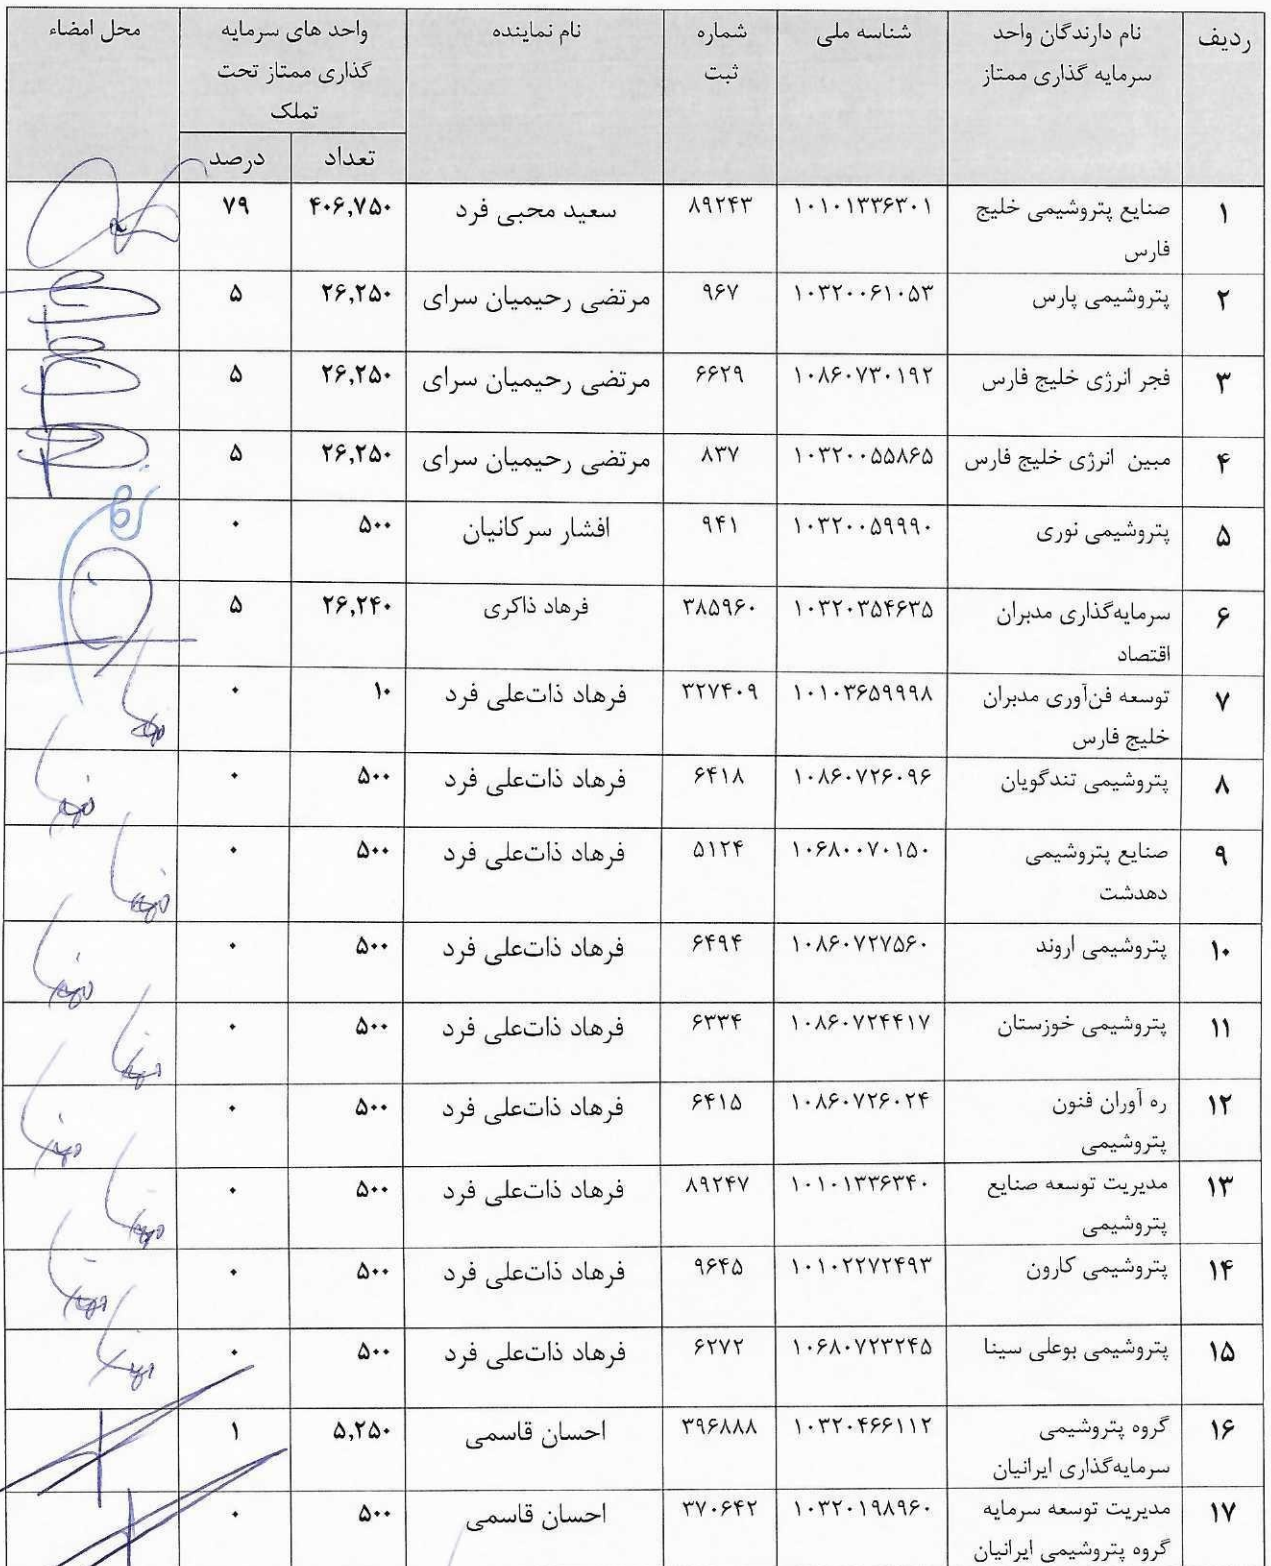 ردیف
نام دارندگان واحد سرمایه گذاری ممتاز
شناسه ملی
شماره ثبت
نام نماینده
واحد های سرمایه گذاری ممتاز تحت تملک
محل امضاء
تعداد
درصد
۱ صنایع پتروشیمی خلیج فارس ۱۰۱۰۱۳۳۶۳۰۱ ۸۹۲۴۳ سعید محبی فرد ۴۰۶,۷۵۰ ۷۹
۲ پتروشیمی پارس ۱۰۳۲۰۰۶۱۰۵۳ ۹۶۷ مرتضی رحیمیان سرای ۲۶,۲۵۰ ۵
۳ فجر انرژی خلیج فارس ۱۰۸۶۰۷۳۰۱۹۲ ۶۶۲۹ مرتضی رحیمیان سرای ۲۶,۲۵۰ ۵
۴ مبین انرژی خلیج فارس ۱۰۳۲۰۰۵۵۸۶۵ ۸۳۷ مرتضی رحیمیان سرای ۲۶,۲۵۰ ۵
۵ پتروشیمی نوری ۱۰۳۲۰۰۵۹۹۹۰ ۹۴۱ افشار سرکانیان ۵۰۰ ۰
۶ سرمایه‌گذاری مدبران اقتصاد ۱۰۳۲۰۳۵۴۶۳۵ ۳۸۵۹۶۰ فرهاد ذاکری ۲۶,۲۴۰ ۵
۷ توسعه فن‌آوری مدبران خلیج فارس ۱۰۱۰۳۶۵۹۹۹۸ ۳۲۷۴۰۹ فرهاد ذات‌علی فرد ۱۰ ۰
۸ پتروشیمی تندگویان ۱۰۸۶۰۷۲۶۰۹۶ ۶۴۱۸ فرهاد ذات‌علی فرد ۵۰۰ ۰
۹ صنایع پتروشیمی دهدشت ۱۰۶۸۰۰۷۰۱۵۰ ۵۱۲۴ فرهاد ذات‌علی فرد ۵۰۰ ۰
۱۰ پتروشیمی اروند ۱۰۸۶۰۷۲۷۵۶۰ ۶۴۹۴ فرهاد ذات‌علی فرد ۵۰۰ ۰
۱۱ پتروشیمی خوزستان ۱۰۸۶۰۷۲۴۴۱۷ ۶۳۳۴ فرهاد ذات‌علی فرد ۵۰۰ ۰
۱۲ ره آوران فنون پتروشیمی ۱۰۸۶۰۷۲۶۰۲۴ ۶۴۱۵ فرهاد ذات‌علی فرد ۵۰۰ ۰
۱۳ مدیریت توسعه صنایع پتروشیمی ۱۰۱۰۱۳۳۶۳۴۰ ۸۹۲۴۷ فرهاد ذات‌علی فرد ۵۰۰ ۰
۱۴ پتروشیمی کارون ۱۰۱۰۲۲۷۲۴۹۳ ۹۶۴۵ فرهاد ذات‌علی فرد ۵۰۰ ۰
۱۵ پتروشیمی بوعلی سینا ۱۰۶۸۰۷۲۳۲۴۵ ۶۲۷۲ فرهاد ذات‌علی فرد ۵۰۰ ۰
۱۶ گروه پتروشیمی سرمایه‌گذاری ایرانیان ۱۰۳۲۰۴۶۶۱۱۲ ۳۹۶۸۸۸ احسان قاسمی ۵,۲۵۰ ۱
۱۷ مدیریت توسعه سرمایه گروه پتروشیمی ایرانیان ۱۰۳۲۰۱۹۸۹۶۰ ۳۷۰۶۴۲ احسان قاسمی ۵۰۰ ۰